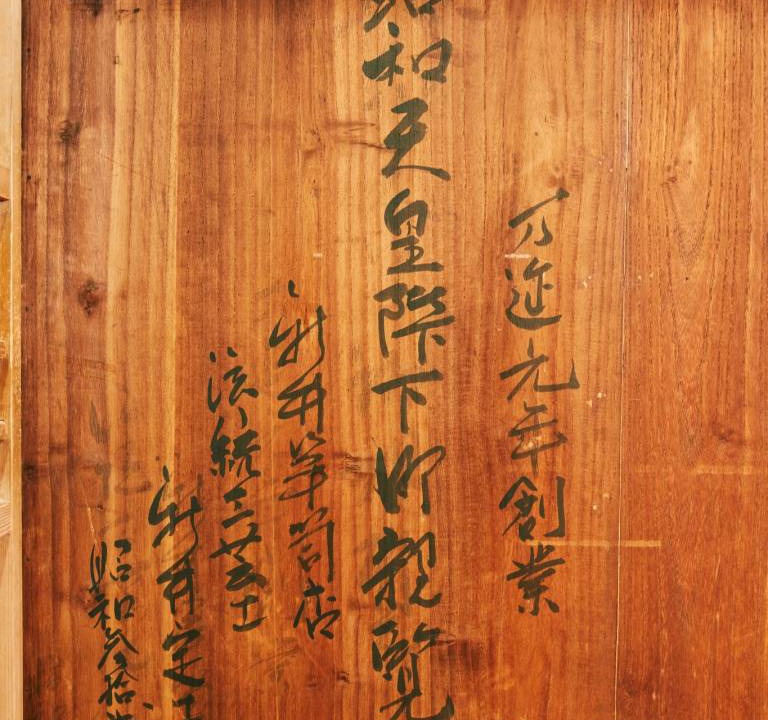 万延元年創業
昭和天皇陛下御親覧
新井箪笥店
伝統工芸士
新井定
昭和参拾